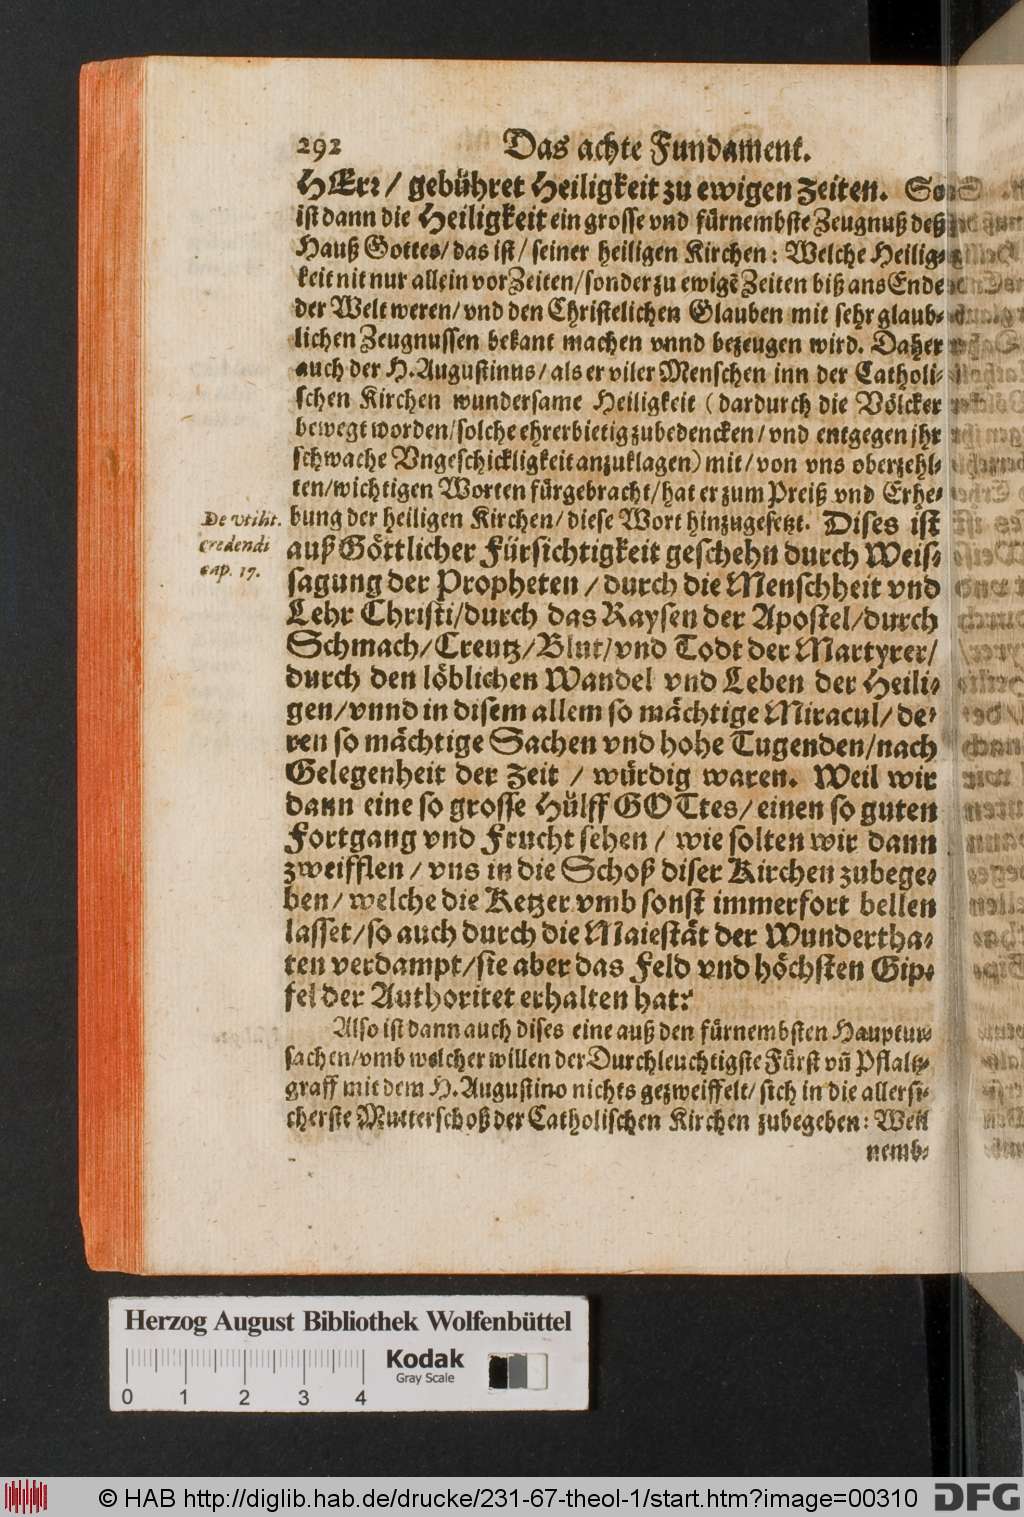 292 Das achte Fundament.
HErr / gebühret Heiligkeit zu ewigen Zeiten. So
ist dann die Heiligkeit ein grosse vnd fürnembste Zeugnuß deß
Hauß Gottes/ das ist/ seiner heiligen Kirchen: Welche Heilig-
keit nit nur allein vor Zeiten/ sonder zu ewigẽ Zeiten biß ans Ende
der Welt weren/ vnd den Christelichen Glauben mit sehr glaub-
lichen Zeugnussen bekant machen vnnd bezeugen wird. Daher
auch der H. Augustinus/ als er viler Menschen inn der Catholi-
schen Kirchen wundersame Heiligkeit (dardurch die Völcker
bewegt worden/ solche ehrerbietig zubedencken/ vnd entgegen jhr
schwache Vngeschickligkeit anzuklagen) mit/ von vns oberzehl-
ten/ wichtigen Worten fürgebracht/ hat er zum Preiß vnd Erhe-
De vtilit.
credendi
cap. 17.
bung der heiligen Kirchen/ diese Wort hinzugesetzt. Dises ist
auß Göttlicher Fürsichtigkeit geschehn durch Weis-
sagung der Propheten / durch die Menschheit vnd
Lehr Christi/ durch das Raysen der Apostel/ durch
Schmach/ Creutz/ Blut/ vnd Todt der Martyrer/
durch den löblichen Wandel vnd Leben der Heili-
gen/ vnnd in disem allem so mächtige Miracul/ de-
ren so mächtige Sachen vnd hohe Tugenden/ nach
Gelegenheit der Zeit / würdig waren. Weil wir
dann eine so grosse Hülff GOTtes/ einen so guten
Fortgang vnd Frucht sehen / wie solten wir dann
zweifflen / vns in die Schoß diser Kirchen zubege-
ben/ welche die Ketzer vmb sonst immerfort bellen
lasset/ so auch durch die Maiestät der Wundertha-
ten verdampt/ sie aber das Feld vnd höchsten Gip-
fel der Authoritet erhalten hat?
Also ist dann auch dises eine auß den fürnembsten Hauptur-
sachen/ vmb welcher willen der Durchleuchtigste Fürst vñ Pfaltz-
graff mit dem H. Augustino nichts gezweiffelt/ sich in die allersi-
cherste Mutterschoß der Catholischen Kirchen zubegeben: Weil
nemb-
Herzog August Bibliothek Wolfenbüttel
Kodak
Gray Scale
0 1 2 3 4
© HAB http://diglib.hab.de/drucke/231-67-theol-1/start.htm?image=00310 DFG